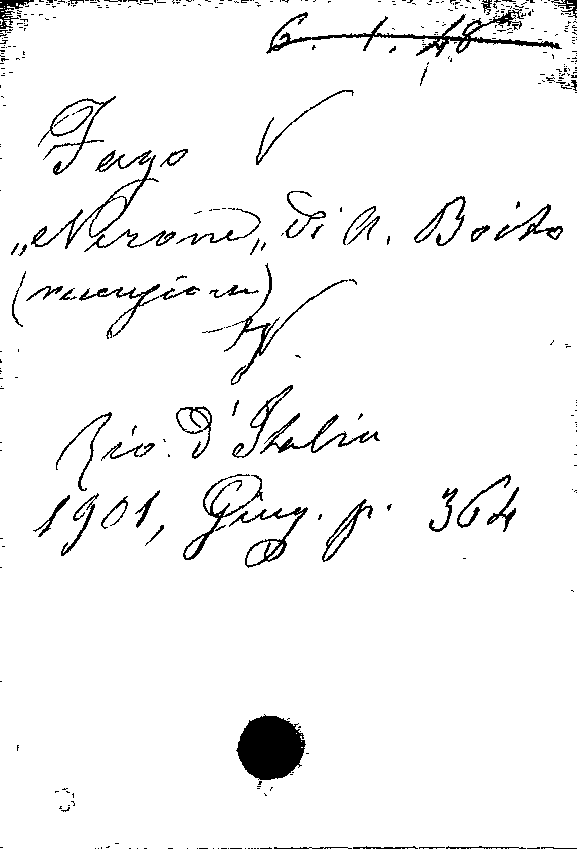 6. 1. 48
Fago
„Nerone„ di A. Boito
(recensione)
Riv. d'Italia
1901, Giug. p. 364